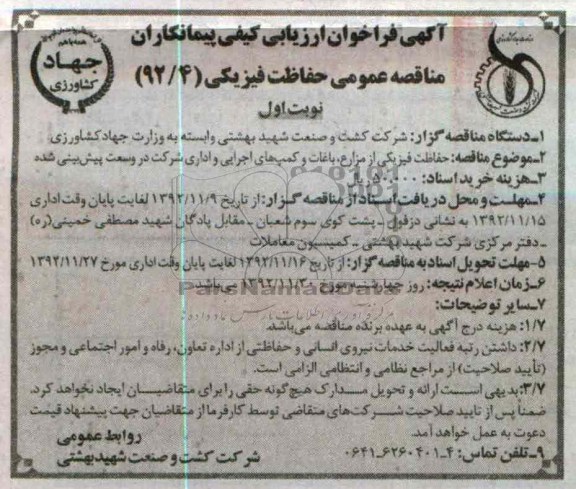 آگهی فراخوان ارزیابی کیفی پیمانکاران
مناقصه عمومی حفاظت فیزیکی (۹۲/۴)
نوبت اول
جهاد
کشاورزی
۱ـ دستگاه مناقصه گزار: شرکت کشت و صنعت شهید بهشتی وابسته به وزارت جهاد کشاورزی
۲ـ موضوع مناقصه: حفاظت فیزیکی از مزارع، باغات و کمپ‌های اجرایی و اداری شرکت در وسعت پیش‌بینی شده
۳ـ هزینه خرید اسناد:
۴ـ مهلت و محل دریافت اسناد از مناقصه گزار: از تاریخ ۱۳۹۲/۱۱/۹ لغایت پایان وقت اداری
۱۳۹۲/۱۱/۱۵ به نشانی دزفول ـ پشت کوی سوم شعبان ـ مقابل پادگان شهید مصطفی خمینی(ره)
ـ دفتر مرکزی شرکت شهید بهشتی ـ کمیسیون معاملات
۵ـ مهلت تحویل اسناد به مناقصه گزار: از تاریخ ۱۳۹۲/۱۱/۱۶ لغایت پایان وقت اداری مورخ ۱۳۹۲/۱۱/۲۷
۶ـ زمان اعلام نتیجه: روز چهارشنبه مورخ ۱۳۹۲/۱۱/۳۰ می‌باشد.
ParsNamadData
۷ـ سایر توضیحات:
۱/۷: هزینه درج آگهی به عهده برنده مناقصه می‌باشد.
۲/۷: داشتن رتبه فعالیت خدمات نیروی انسانی و حفاظتی از اداره تعاون، رفاه و امور اجتماعی و مجوز
(تأیید صلاحیت) از مراجع نظامی و انتظامی الزامی است.
۳/۷: بدیهی است ارائه و تحویل مدارک هیچ گونه حقی را برای متقاضیان ایجاد نخواهد کرد.
ضمناً پس از تایید صلاحیت شرکت‌های متقاضی توسط کارفرما از متقاضیان جهت پیشنهاد قیمت
دعوت به عمل خواهد آمد.
۹ـ تلفن تماس: ۴ـ۶۲۶۰۴۰۱ـ۰۶۴۱
روابط عمومی
شرکت کشت و صنعت شهید بهشتی